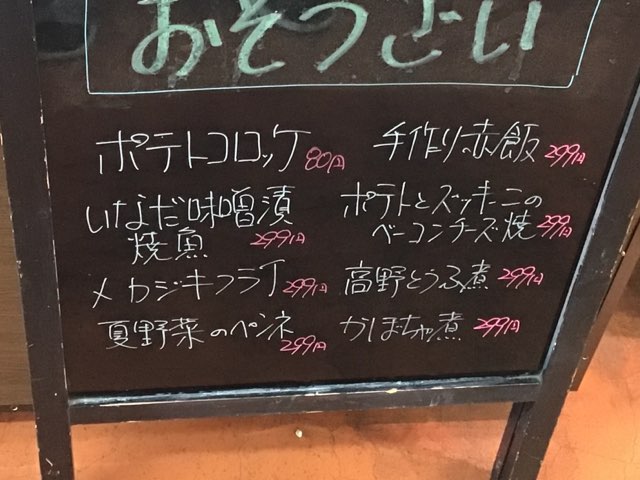 おそうざい
ポテトコロッケ 80円
いなだ味噌漬
焼魚 299円
メカジキフライ 299円
夏野菜のペンネ 299円
手作り赤飯 299円
ポテトとズッキーニの
ベーコンチーズ焼 299円
高野とうふ煮 299円
かぼちゃ煮 299円